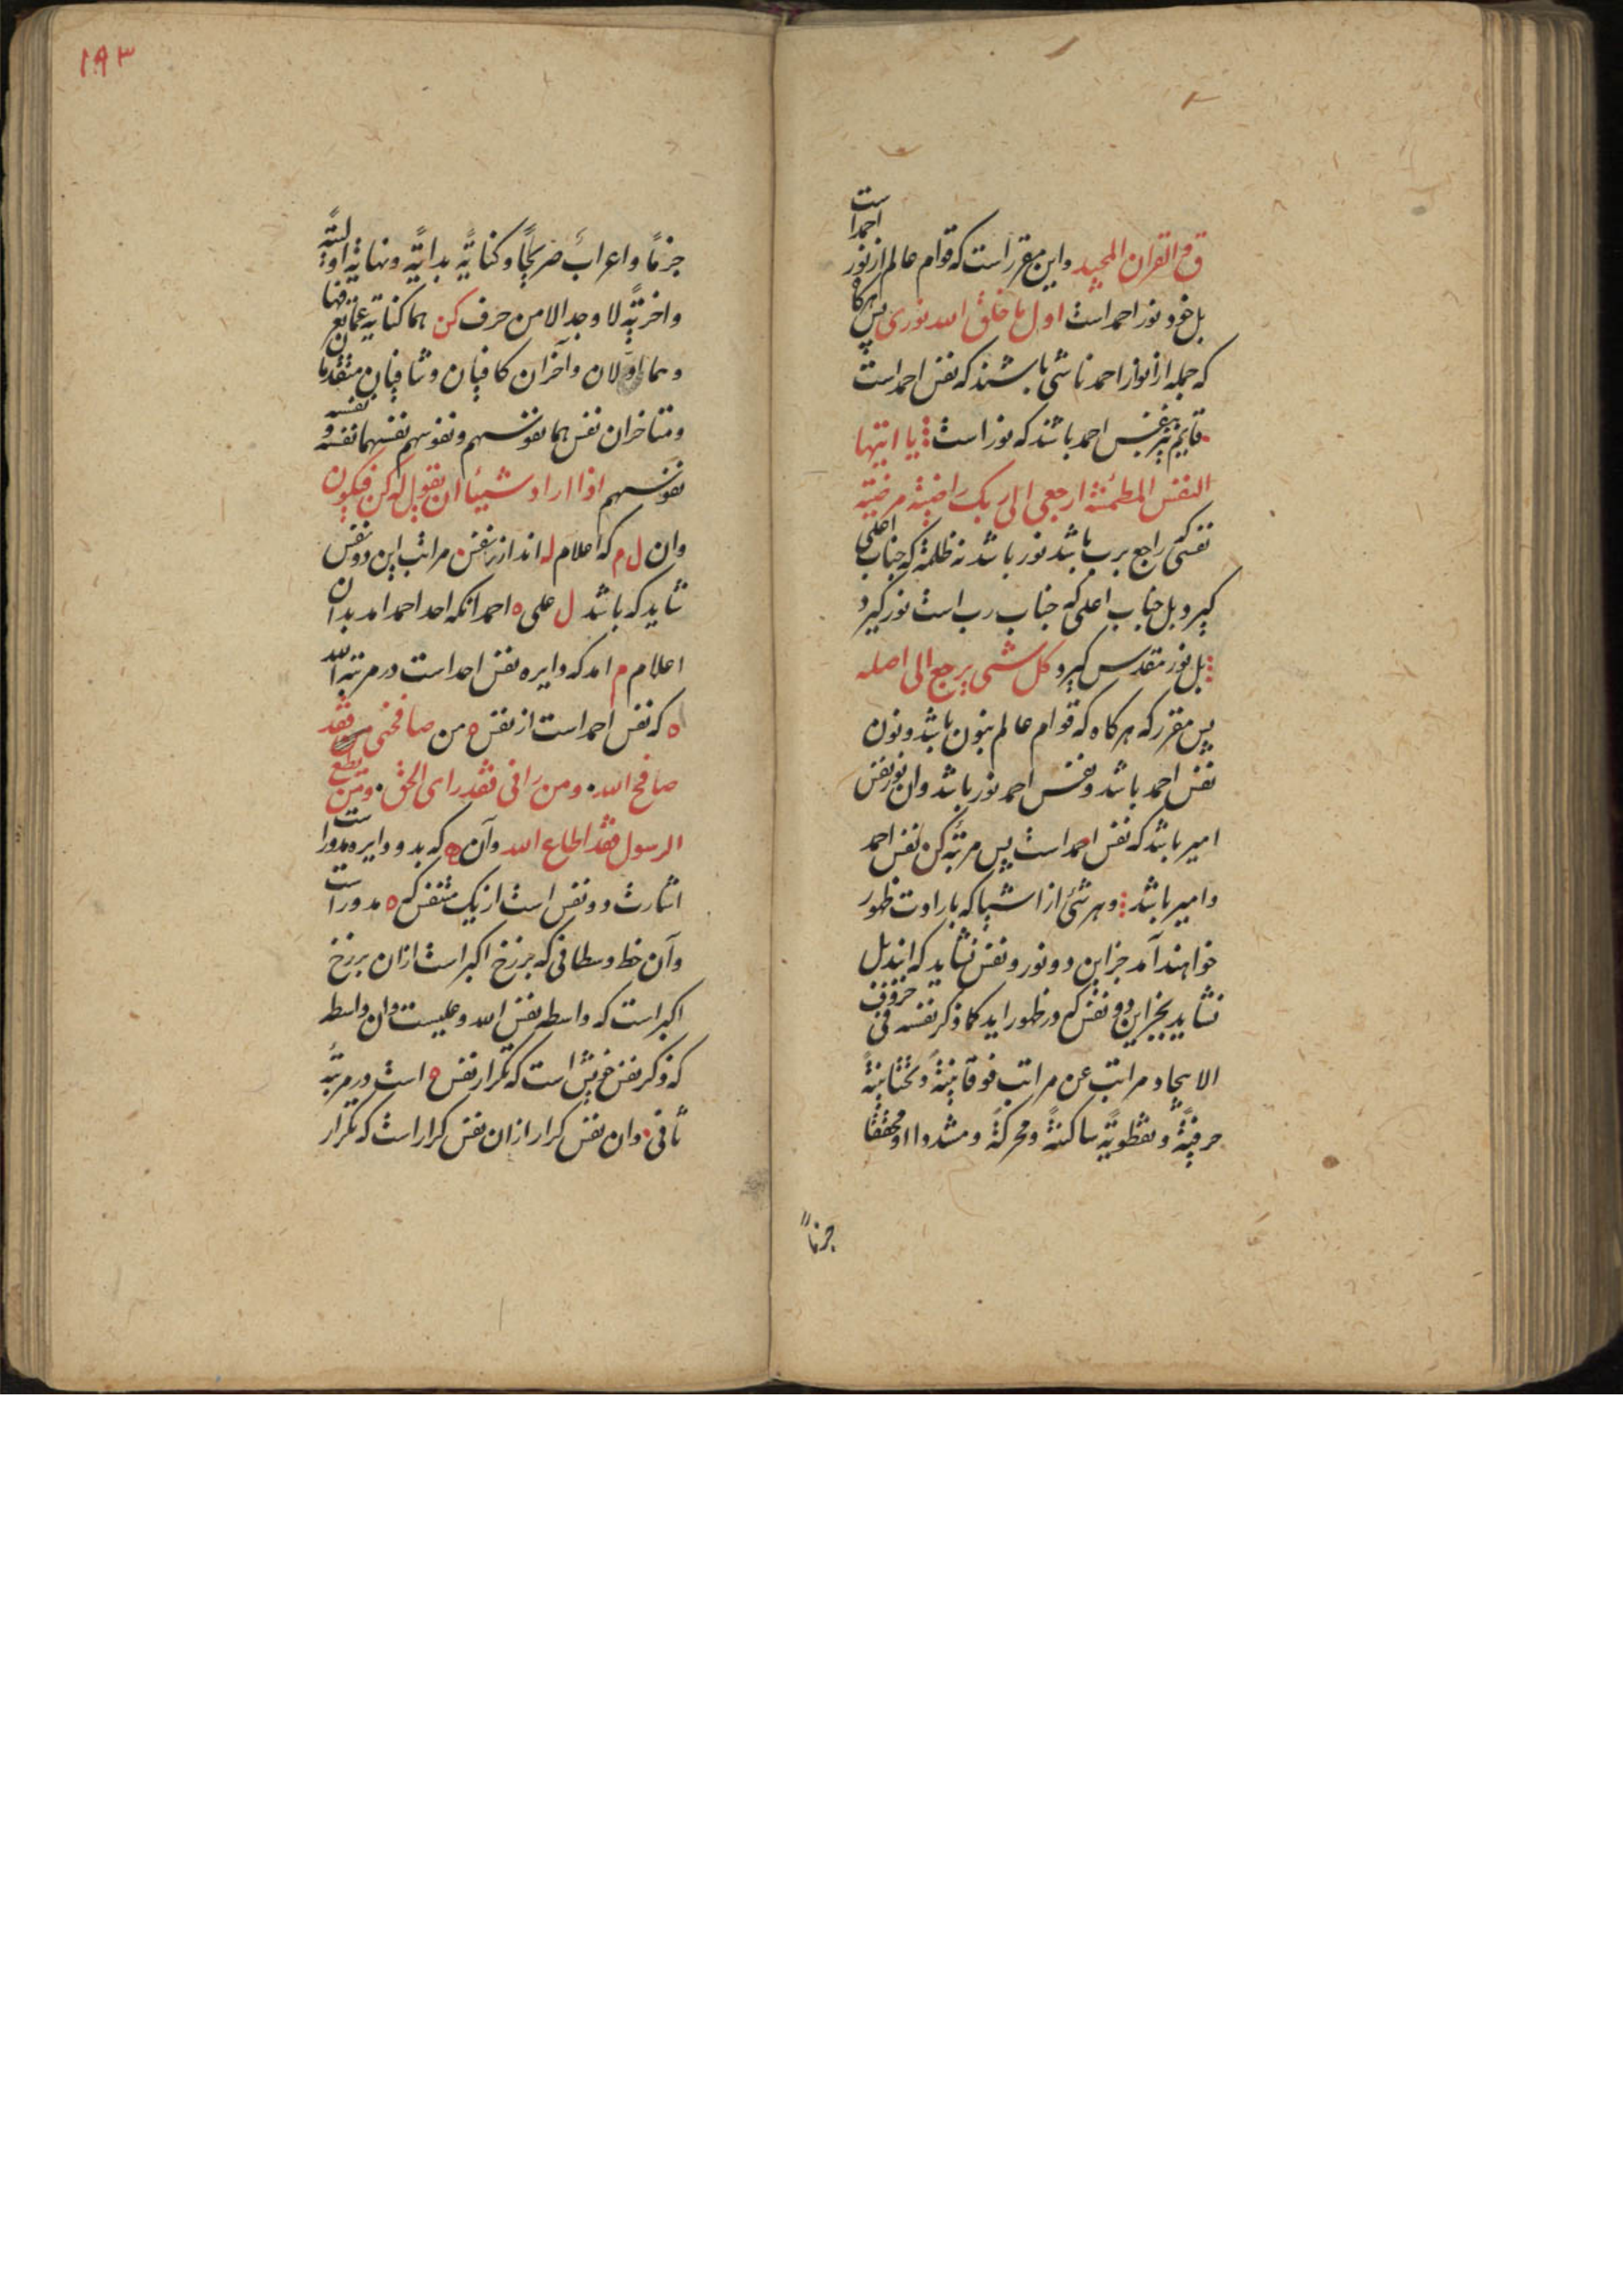 ق والقران المجید واین مقرر است که قوام عالم از نور احمد است
بل خود نور احمد است اول ما خلق الله نوری پس هرکاه
که جمله از انوار احمد ناشی باشند که نفس احمد است
قایم بنفس احمد باشند که نور است یا ایتها
النفس المطمئنة ارجعی الی ربک راضیة مرضیة
نفسی که راجع برب باشد نور باشد نه ظلمة که جناب اعلی
کیرد بل جناب اعلی که جناب رب است نور کیرد
بل نور مقدس کیرد کل شی یرجع الی اصله
پس مقرر که هرکاه که قوام عالم بنون باشد ونون
نفس احمد باشد ونفس احمد نور باشد وان نور نفس
امیر باشد که نفس احمد است پس مرتبه کن نفس احمد
وامیر باشد وهر شئ از اشیا که بارادت ظهور
خواهند آمد جز این دو نور ونفس نشاید که ایند بل
نشاید بجز این دو نفس که در ظهور اید کما ذکر نفسه فی حروف
الایجاد مراتب عن مراتب فوقانیةً وتحتانیةً
حرفیةً ونقطویةً ساکنةً ومحرکةً ومشددا او مخففا
جزماً
١٩٣
جزمًا واعرابً صریحًا وکنایةً بدایةً ونهایةً اولیةً
واخریةً لا وجد الا من حرف کن هما کنایة عما یقع فیها
وهما اولان وآخران کافیان وشافیان متقدمان
ومتاخران نفس هما نفوسهم ونفوسهم نفسهما نفسه ونفسه
نفوسهم اذا اراد شیئا ان یقول له کن فیکون
وان ل م که اعلام له اند از نفس مراتب این دو نفس
شاید که باشد ل علی ه احمد انکه احد احمد امد بدان
اعلام م امد که دایره نفس احد است در مرتبه الله
ه که نفس احمد است از نفس ه من صافحنی فقد
صافح الله ومن رانی فقد رای الحق ومن یطع
الرسول فقد اطاع الله وآن ه که بدو دایره مدور است
اشارت دو نفس است از یک متنفس که ه مدور است
وآن خط وسطانی که برزخ اکبر است ازان برزخ
اکبر است که واسطه نفس الله وعلیست وان واسطه
که ذکر نفس خویش است که تکرار نفس ه است در مرتبه
ثانی وان نفس کرار ازان نفس کرار است که تکرار